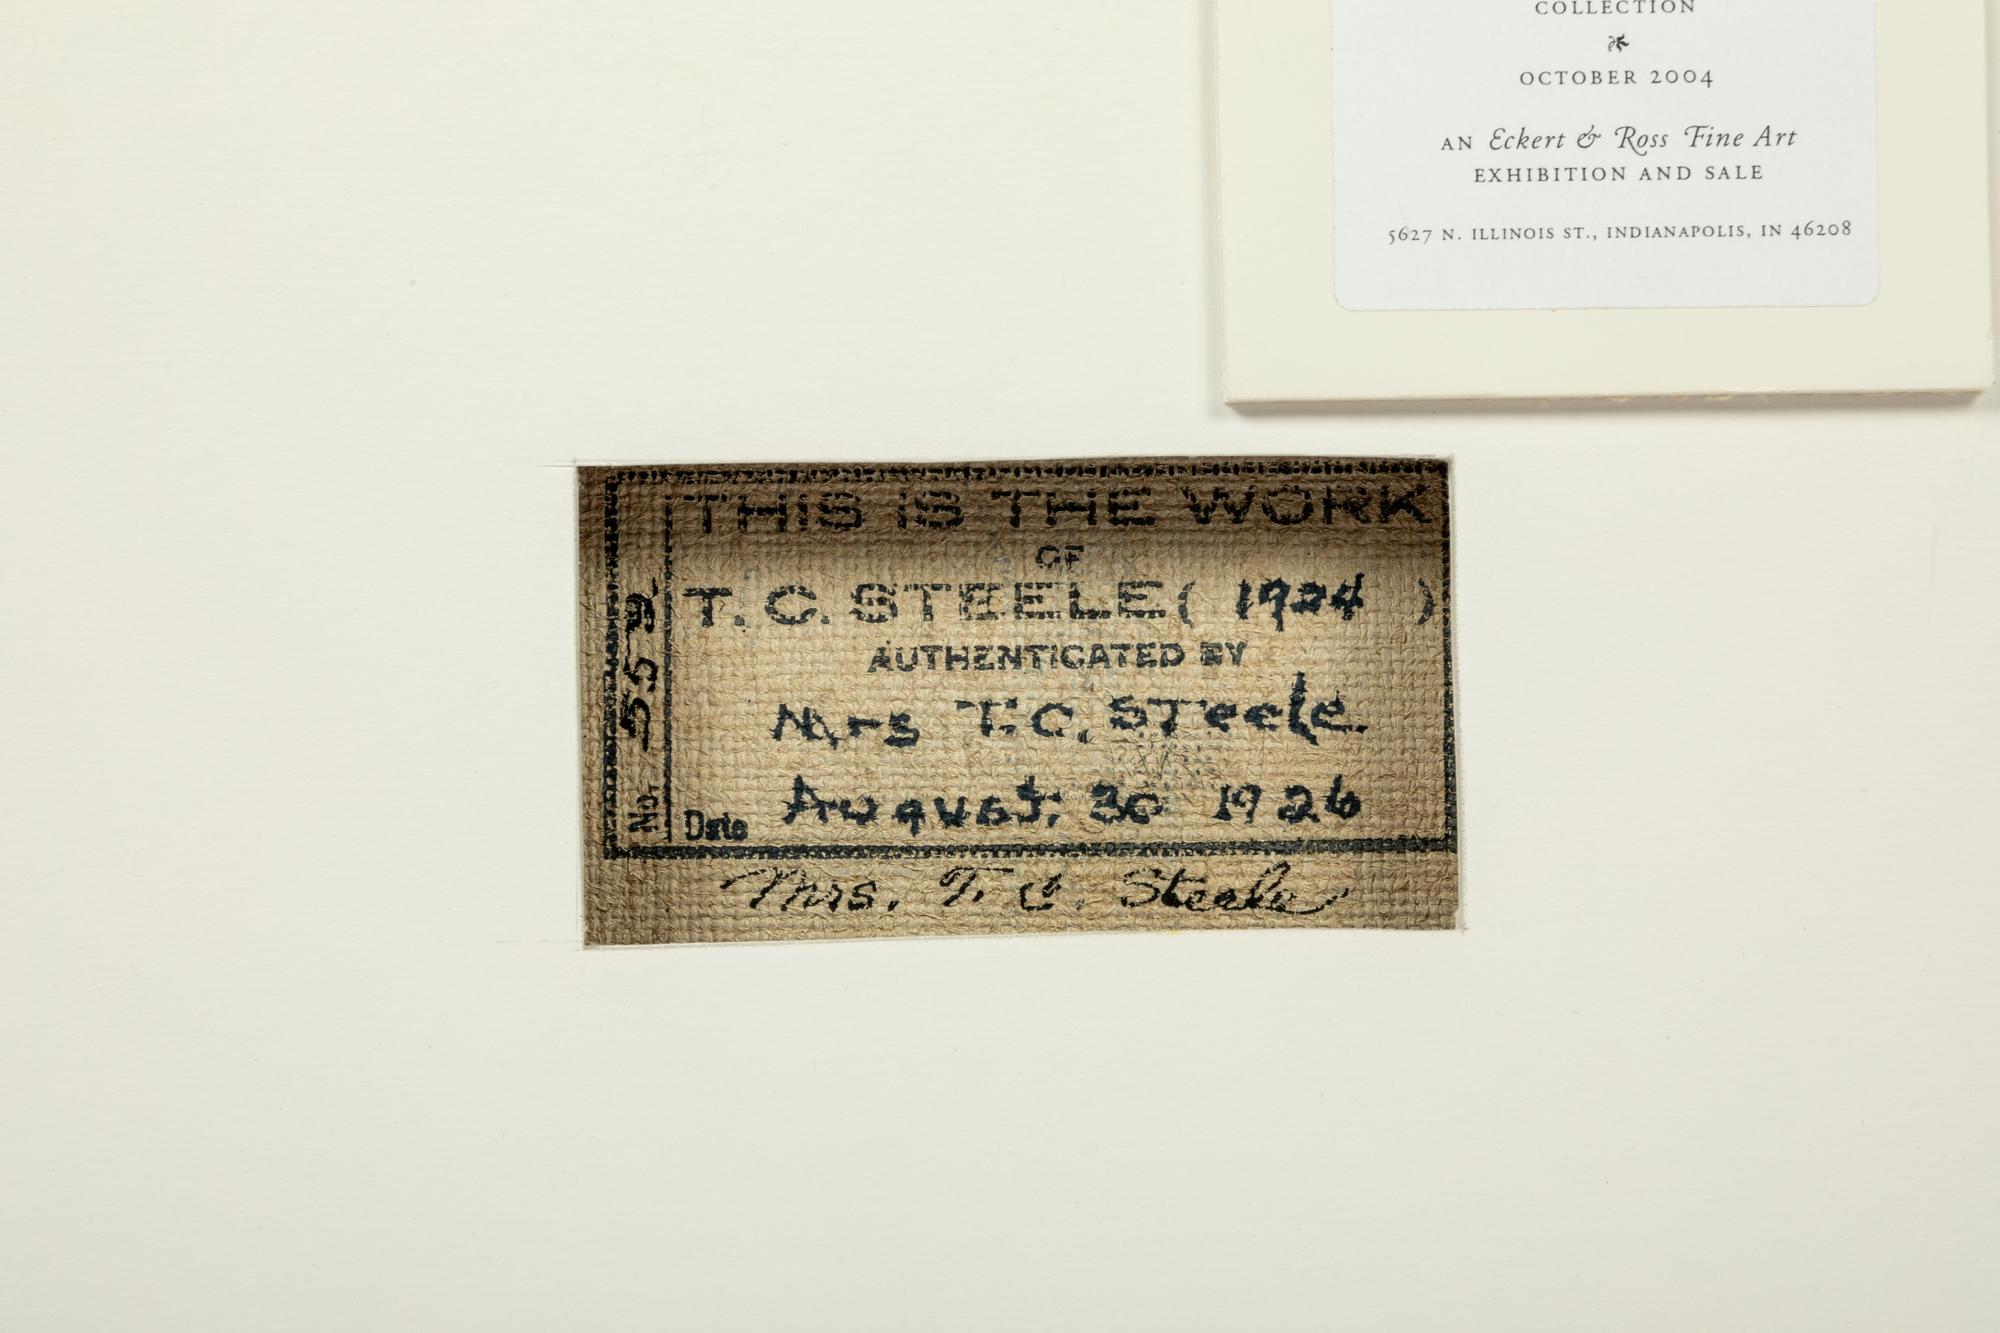 COLLECTION
OCTOBER 2004
AN Eckert & Ross Fine Art
EXHIBITION AND SALE
5627 N. ILLINOIS ST., INDIANAPOLIS, IN 46208
THIS IS THE WORK
OF
T. C. STEELE ( 1924 )
AUTHENTICATED BY
Mrs T. C. Steele
Date August 30 1926
No.
Mrs. T. C. Steele